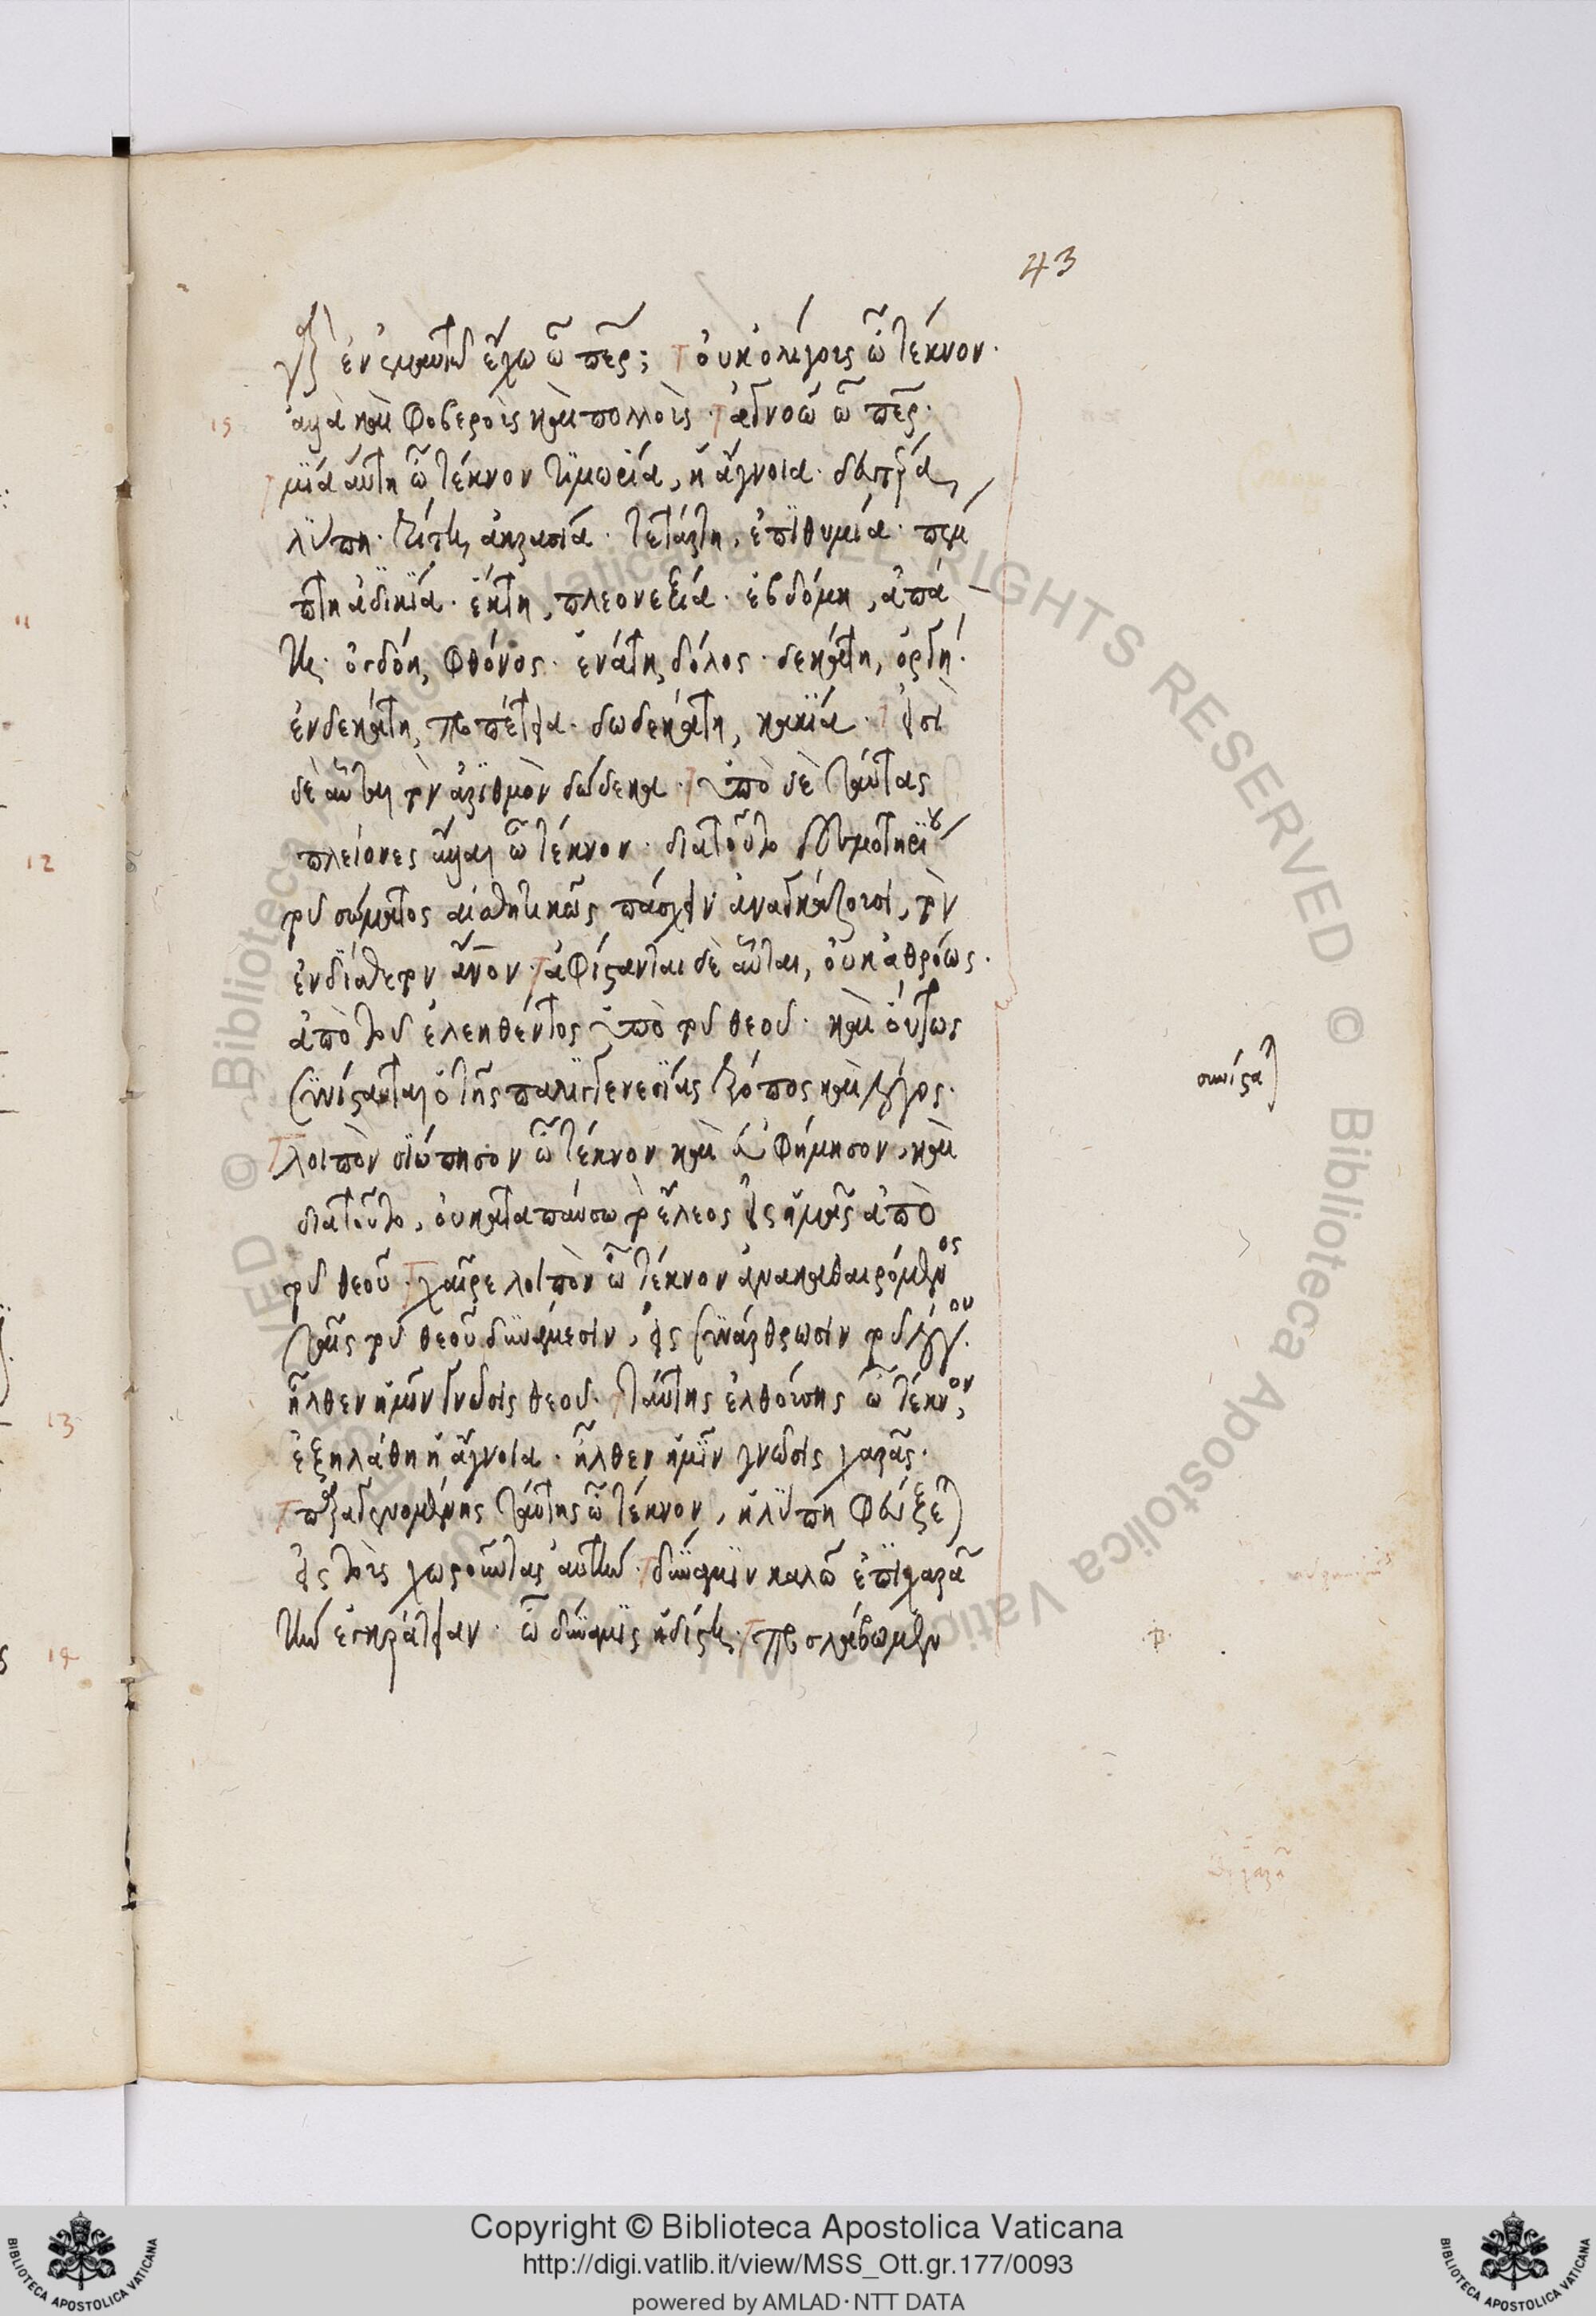 43
γὰρ ἐν ἐμαυτῶ ἔχω ὦ περ; οὐκ ὀλίγους ὦ τέκνον·
15 ἀλλὰ καὶ φοβεροὺς καὶ πολλούς· ἀγνοῶ ὦ περ·
μία αὕτη ὦ τέκνον τιμωρία, ἡ ἄγνοια· δευτέρα,
λύπη· τρίτη, ἀκρασία· τετάρτη, ἐπιθυμία· πεμ
πτη ἀδικία· ἕκτη, πλεονεξία· ἑβδόμη, ἀπά
τη· ὀγδόη, φθόνος· ἐνάτη, δόλος· δεκάτη, ὀργή·
ἑνδεκάτη, προπέτεια· δωδεκάτη, κακία· εἰσὶ
δὲ αὗται τὸν ἀριθμὸν δώδεκα· ὑπὸ δὲ ταύτας
πλείονες ἄλλαι ὦ τέκνον· διὰ τοῦτο δεσμωτηρίου
τοῦ σώματος αἰσθητικῶς πάσχειν ἀναγκάζουσι, τὸν
ἐνδιάθετον ἄνον· ἀφίστανται δὲ αὗται, οὐκ ἀθρόως·
ἀπὸ τοῦ ἐλεηθέντος ὑπὸ τοῦ θεοῦ· καὶ οὕτως
συνίσταται ὁ τῆς παλιγγενεσίας τρόπος καὶ λόγος·
λοιπὸν σιώπησον ὦ τέκνον καὶ εὐφήμησον, καὶ
διὰ τοῦτο, οὐ καταπαύσω τὸ ἔλεος εἰς ἡμᾶς ἀπὸ
τοῦ θεοῦ· χαῖρε λοιπὸν ὦ τέκνον ἀνακαθαιρόμενος
ταῖς τοῦ θεοῦ δυνάμεσιν, εἰς συνάρθρωσιν τοῦ λόγου·
ἦλθεν ἡμῖν γνῶσις θεοῦ· ταύτης ἐλθούσης ὦ τέκνον,
ἐξηλάθη ἡ ἄγνοια· ἦλθεν ἡμῖν γνῶσις χαρᾶς·
παραγενομένης ταύτης ὦ τέκνον, ἡ λύπη φεύξεται
εἰς τοὺς χωροῦντας αὐτήν· δύναμιν καλῶ ἐπὶ χαρᾶ
τὴν ἐγκράτειαν· ὦ δύναμις ἡδίστη· προσλάβωμεν
συνίσταται
11
12
13
14
Copyright © Biblioteca Apostolica Vaticana
http://digi.vatlib.it/view/MSS_Ott.gr.177/0093
powered by AMLAD·NTT DATA
BIBLIOTECA APOSTOLICA VATICANA
BIBLIOTECA APOSTOLICA VATICANA